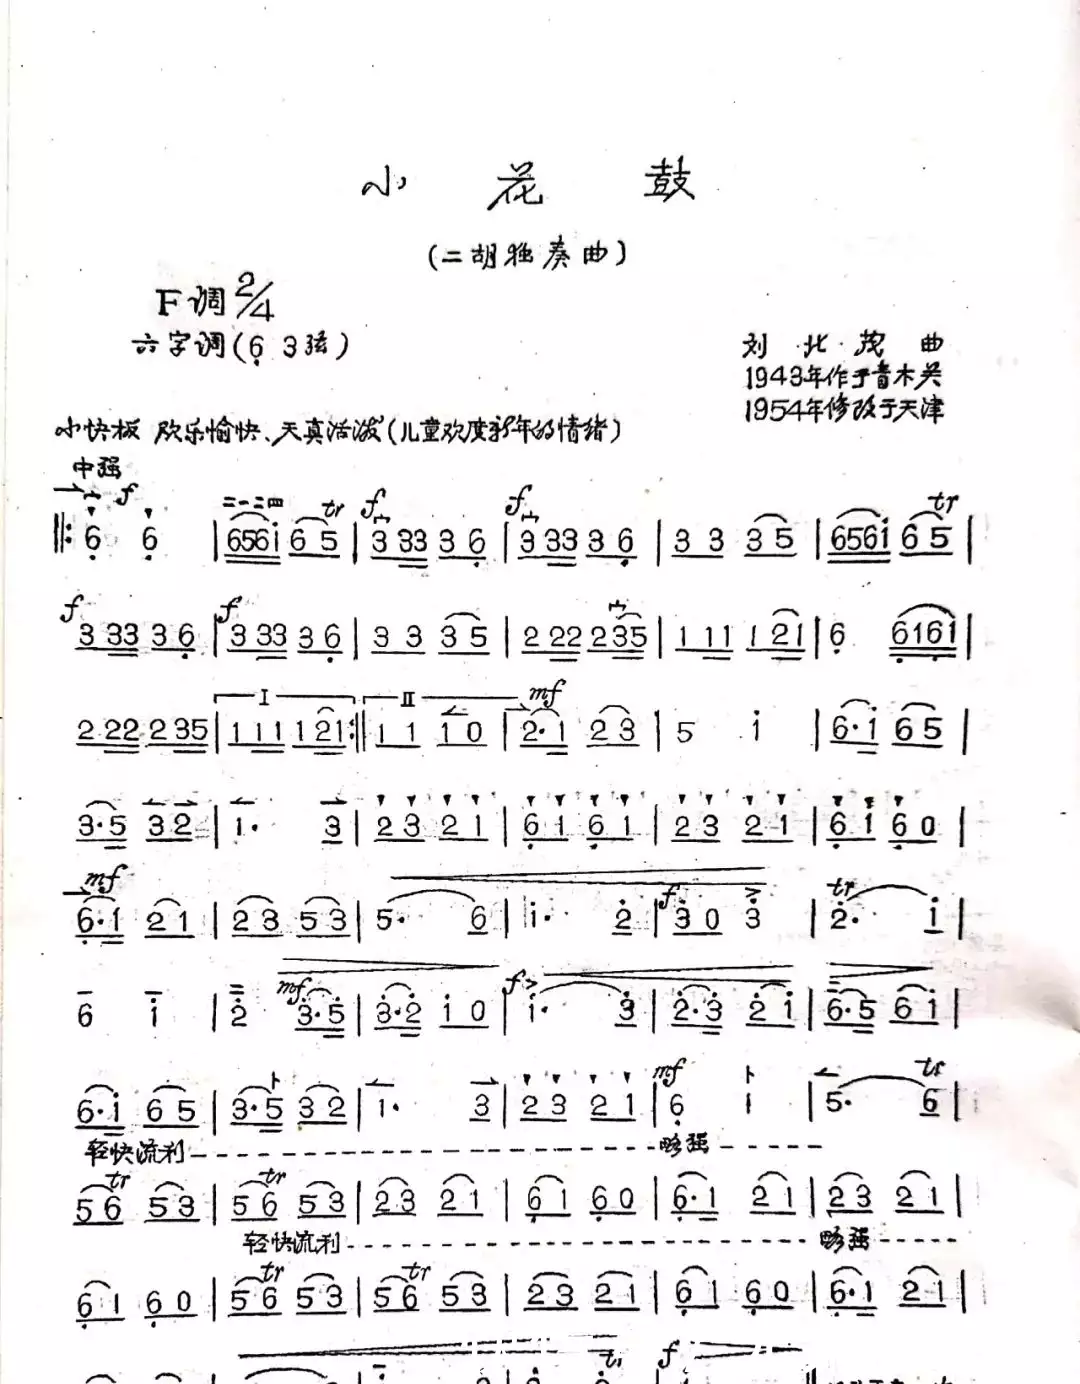 小花鼓
(二胡独奏曲)
F调 2/4
六字调(6 3弦)
刘北茂曲
1943年作于青木关
1954年修改于天津
小快板 欢乐愉快、天真活泼(儿童欢度新年的情绪)
中强
f 二一二四 tr f f tr
‖: 6 6 | 6561 65 | 3 33 36 | 3 33 36 | 33 35 | 6561 65 |
f f
3 33 36 | 3 33 36 | 33 35 | 2 22 235 | 1 11 1 21 | 6 6161 |
I II mf
2 22 235 | 1 11 1 21 :‖ 11 10 | 2·1 23 | 5 i | 6·i 65 |
3·5 32 | 1· 3 | 23 21 | 61 61 | 23 21 | 61 60 |
mf f tr
6·1 21 | 23 53 | 5· 6 | i· 2 | 3 0 3 | 2· i |
mf f
6 i | 2 3·5 | 3·2 i0 | i· 3 | 2·3 2i | 6·5 6i |
mf tr
6·i 65 | 3·5 32 | 1· 3 | 23 21 | 6 1 | 5· 6 |
轻快流利 略强
tr tr
56 53 | 56 53 | 23 21 | 61 60 | 6·1 21 | 23 21 |
轻快流利 略强
tr tr
61 60 | 56 53 | 56 53 | 23 21 | 61 60 | 6·1 21 |
f